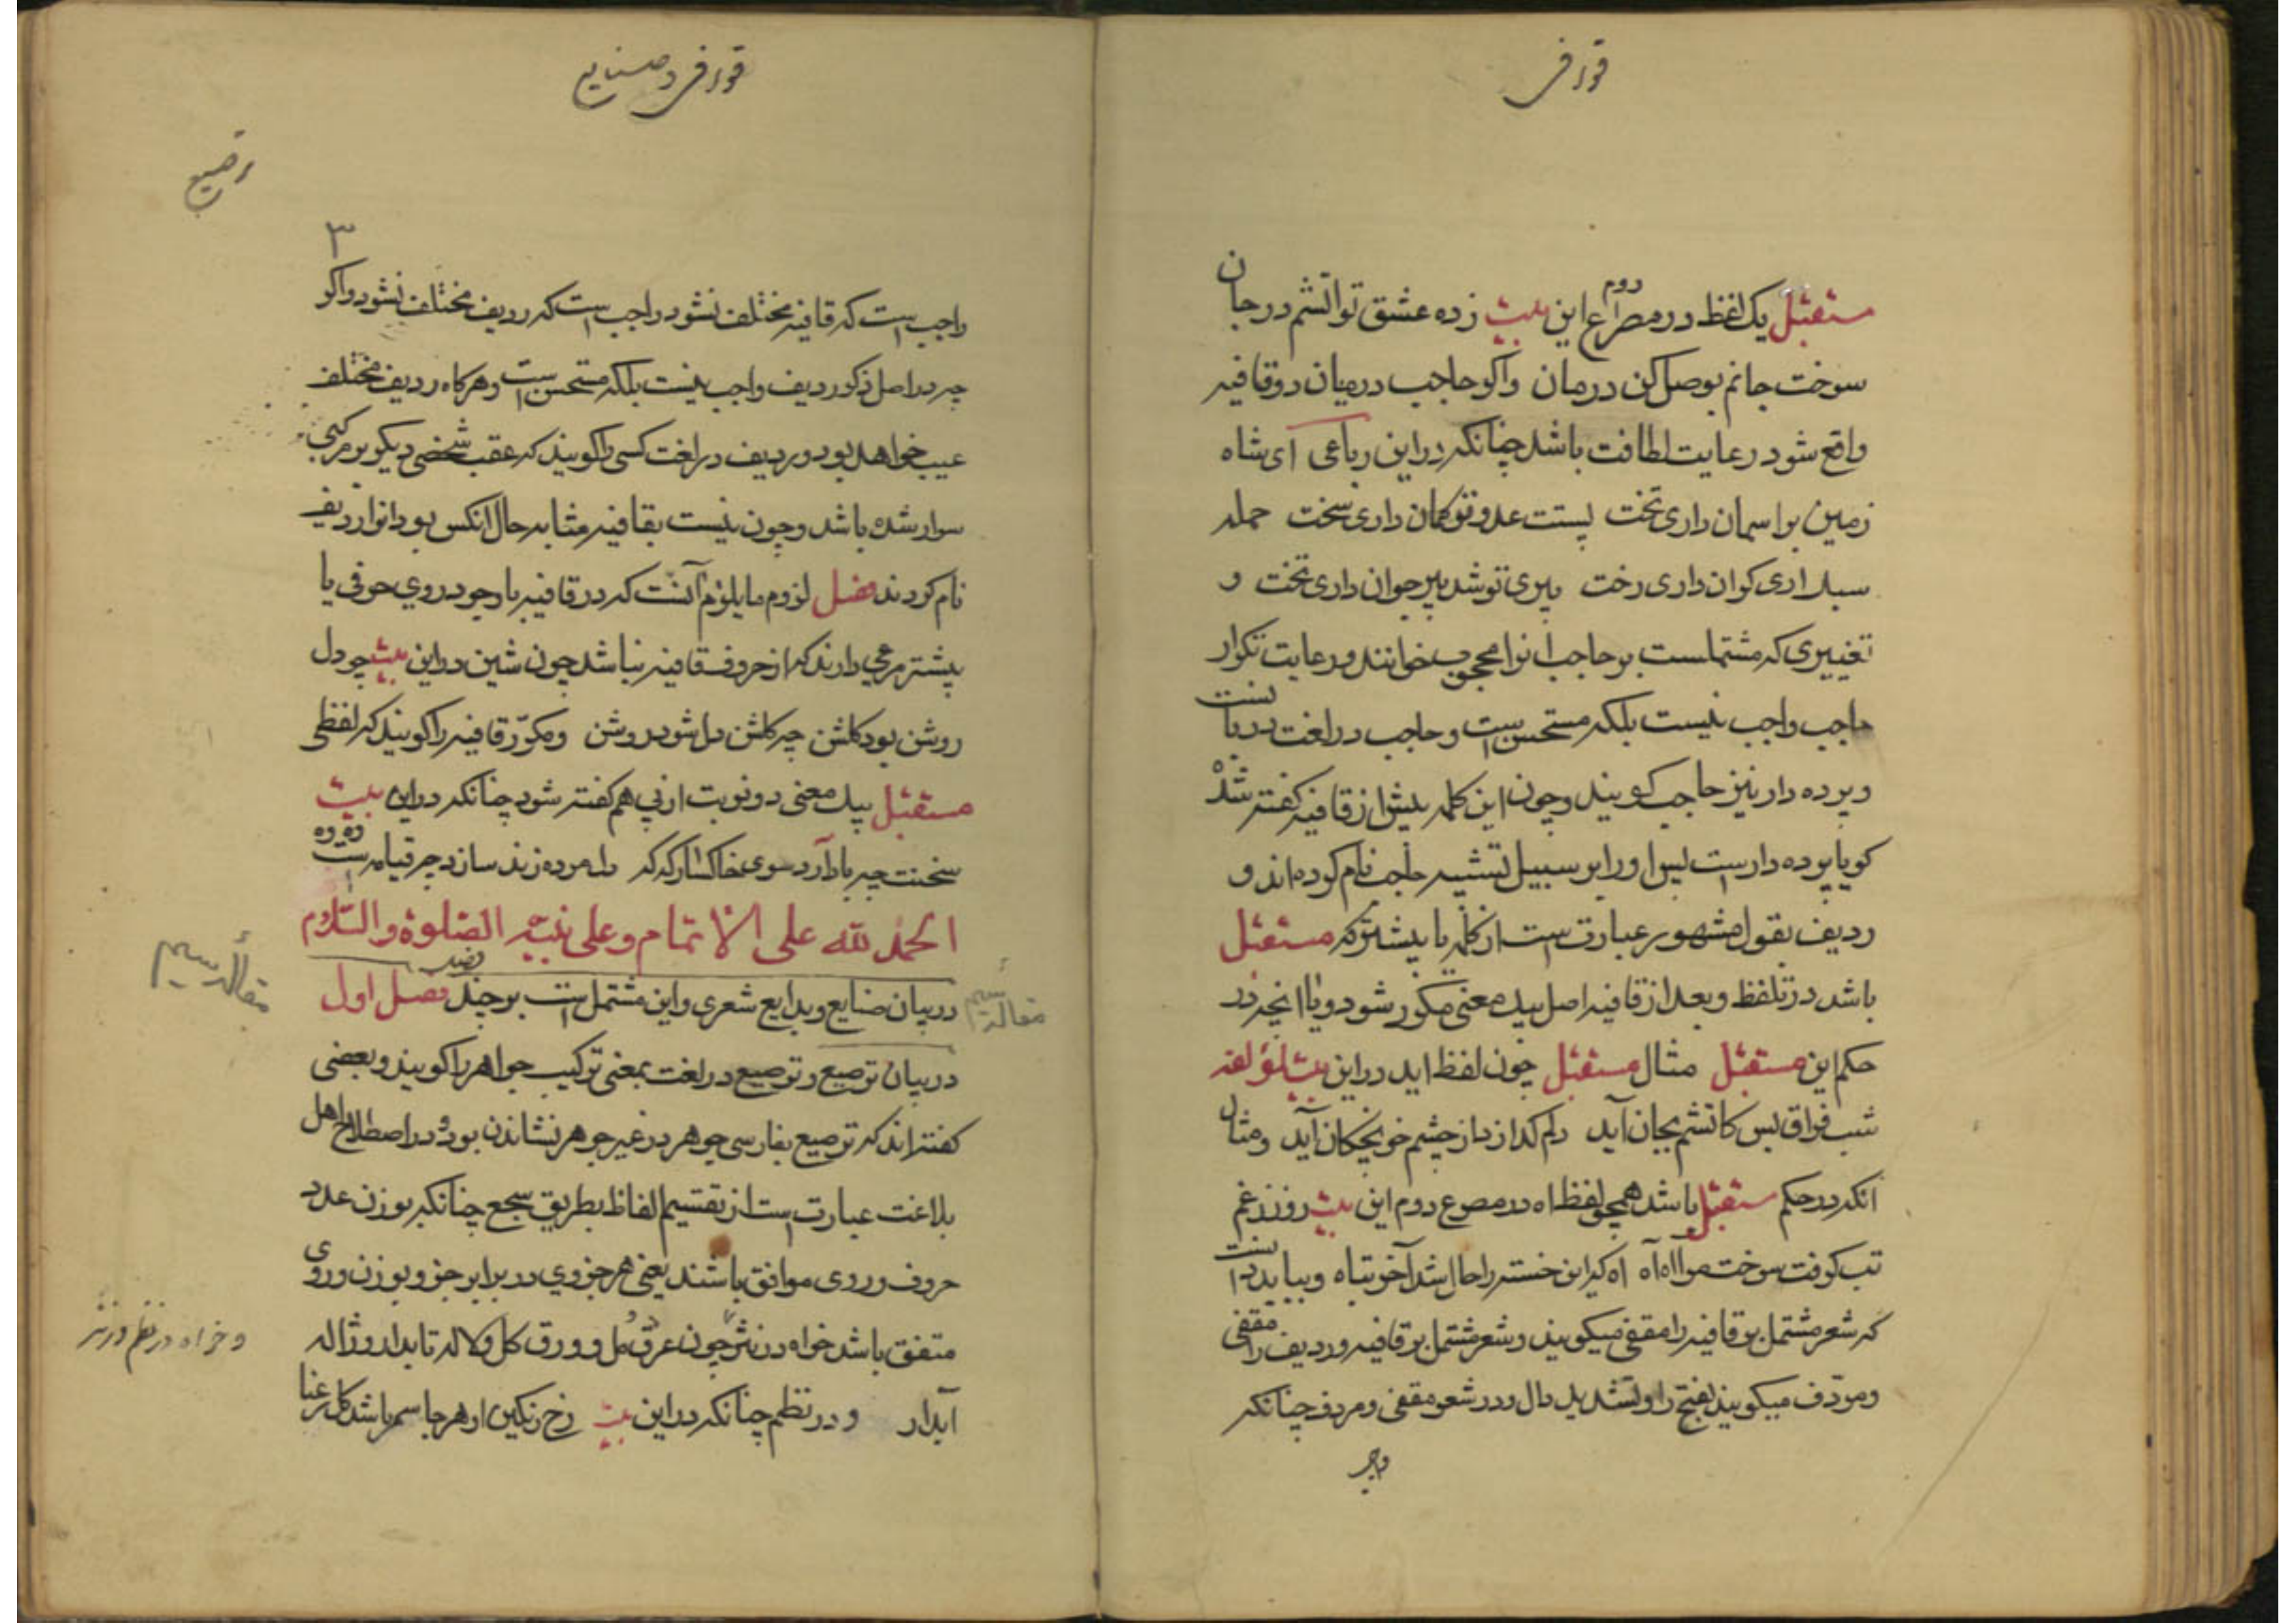 قوافی
مستقبل یک لفظ در مصراع دوم این بیت زده عشق تو آتشم در جان
سوخت جانم بوصل کن درمان واکر حاجب درمیان دو قافیه
واقع شود رعایت لطافت باشد چنانکه دراین رباعی ای شاه
زمین بر اسمان داری تخت پستت عدو تو کمان داری سخت حمله
سبک اری کران داری رخت پیری تو شد پیر جوان داری بخت و
تغییری که مشتملست بر حاجب انرا محجوب خوانند ورعایت تکرار
حاجب واجب نیست بلکه مستحسن است وحاجب در لغت دربانست
وپرده دار نیز حاجب کویند وچون این کلمه پیش از قافیه کفته شد
کویا پرده دار است پس اورا بر سبیل تشبیه حاجب نام کرده اند و
ردیف بقول مشهور عبارت است از کلمه یا بیشتر که مستقبل
باشد در تلفظ وبعد از قافیه اصل بیک معنی مکرر شود ویا انچه در
حکم این مستقبل مثال مستقبل چون لفظ اید دراین بیت لمؤلفه
شب فراق بس کاتشم بجان آید دلم کداز از چشم خونچکان آید ومثال
انکه در حکم مستقبل باشد همچو لفظ اه در مصرع دوم این بیت روز زغم
تب کرفت سوخت مرا اه آه اه که این خسته را حال شد آخر تباه وبباید دانست
که شعر مشتمل بر قافیه را مقفی میکویند وشعر مشتمل بر قافیه وردیف را مقفی
ومردف میکویند بفتح را وتشدید دال ودر شعر مقفی ومردف چنانکه
واجب
قوافی وصنایع
ترصیع
۳
واجب است که قافیه مختلف نشود واجب است که ردیف مختلف نشود واکر
چه دراصل ذکر ردیف واجب نیست بلکه مستحسن است وهرکاه ردیف مختلف
عیب خواهد بود وردیف در لغت کسی را کویند که عقب شخصی دیکر بر مرکبی
سوار شده باشد وچون نیست بقافیه مثابه حال انکس بود انرا ردیف
نام کردند فصل لزوم ما یلزم آنست که در قافیه با وجود روی حرفی یا
بیشتر مرعی دارند که از حروف قافیه نباشد چون شین دراین بیت چو دل
روشن بود کلشن چه کلشن دل شود روشن ومکرّر قافیه را کویند که لفظی
مستقبل بیک معنی دو نوبت از پی هم کفته شود چنانکه دراین بیت
سخنت چه باد آرد سوی خاکسار که که دل مرده زنده سازد چه قیامت است وه وه
الحمد لله علی الاتمام وعلی نبیّه الصّلوة والسّلام
مقاله سیم
دربیان صنایع وبدایع شعری واین مشتمل است بر چند فصل فصل اول
مقاله سیم
دربیان ترصیع وترصیع در لغت بمعنی ترکیب جواهر را کویند وبعضی
کفته اند که ترصیع بفارسی جوهر در غیر جوهر نشاندن بود ودر اصطلاح اهل
بلاغت عبارت است از تقسیم الفاظ بطریق سجع چنانکه بوزن عدد
حروف وروی موافق باشند یعنی هر جزوی در برابر جزو بوزن وروی
متفق باشد خواه در نثر چون عرق مل وورق کل ولاله تابدار وژاله
وخواه در نظم ونثر
آبدار ودر نظم چنانکه دراین بیت رخ رنکین او هرجا سمر باشد کل رعنا